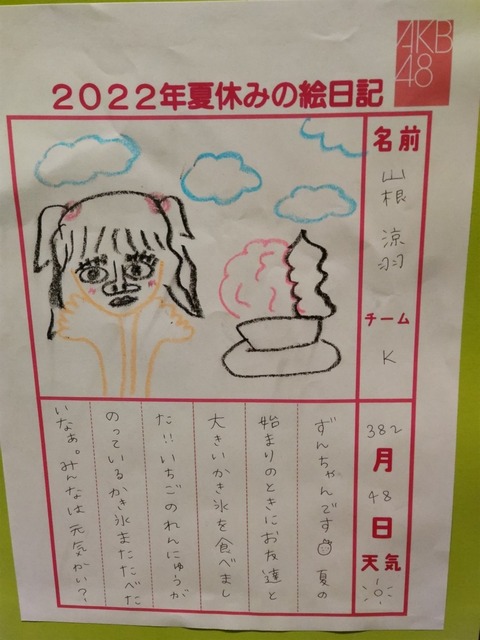 AKB
48
2022年夏休みの絵日記
名前
山根 涼羽
チーム
K
382
月
48
日
天気
ずんちゃんです 夏の
始まりのときにお友達と
大きいかき氷を食べまし
た!!いちごのれんにゅうが
のっているかき氷またたべた
いなぁ。みんなは元気かい?